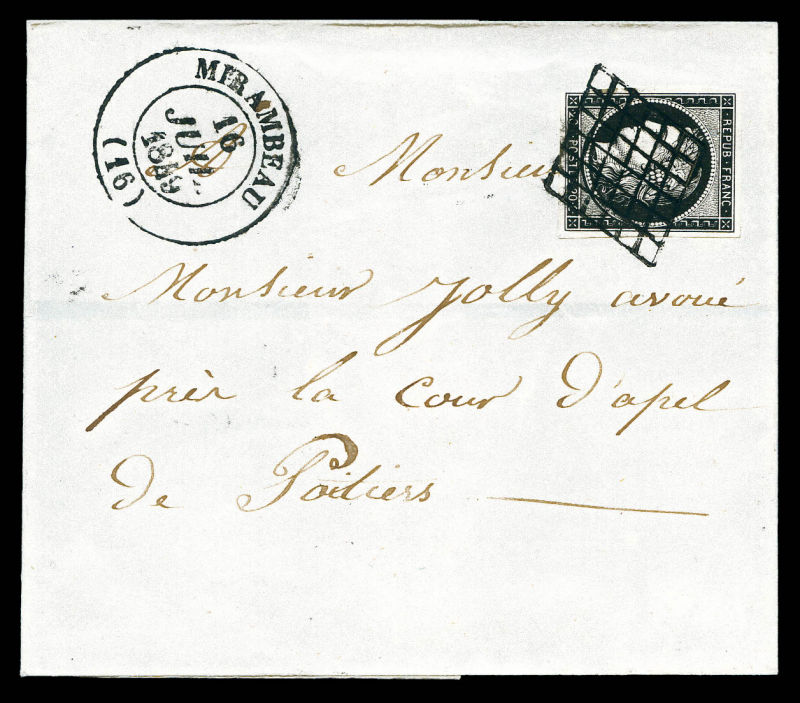 MIRAMBEAU
16
JUIL.
1849
(16)
REPUB. FRANC.
POSTES
Monsieur
Monsieur Jolly avoué
près la Cour d'apel
de Poitiers